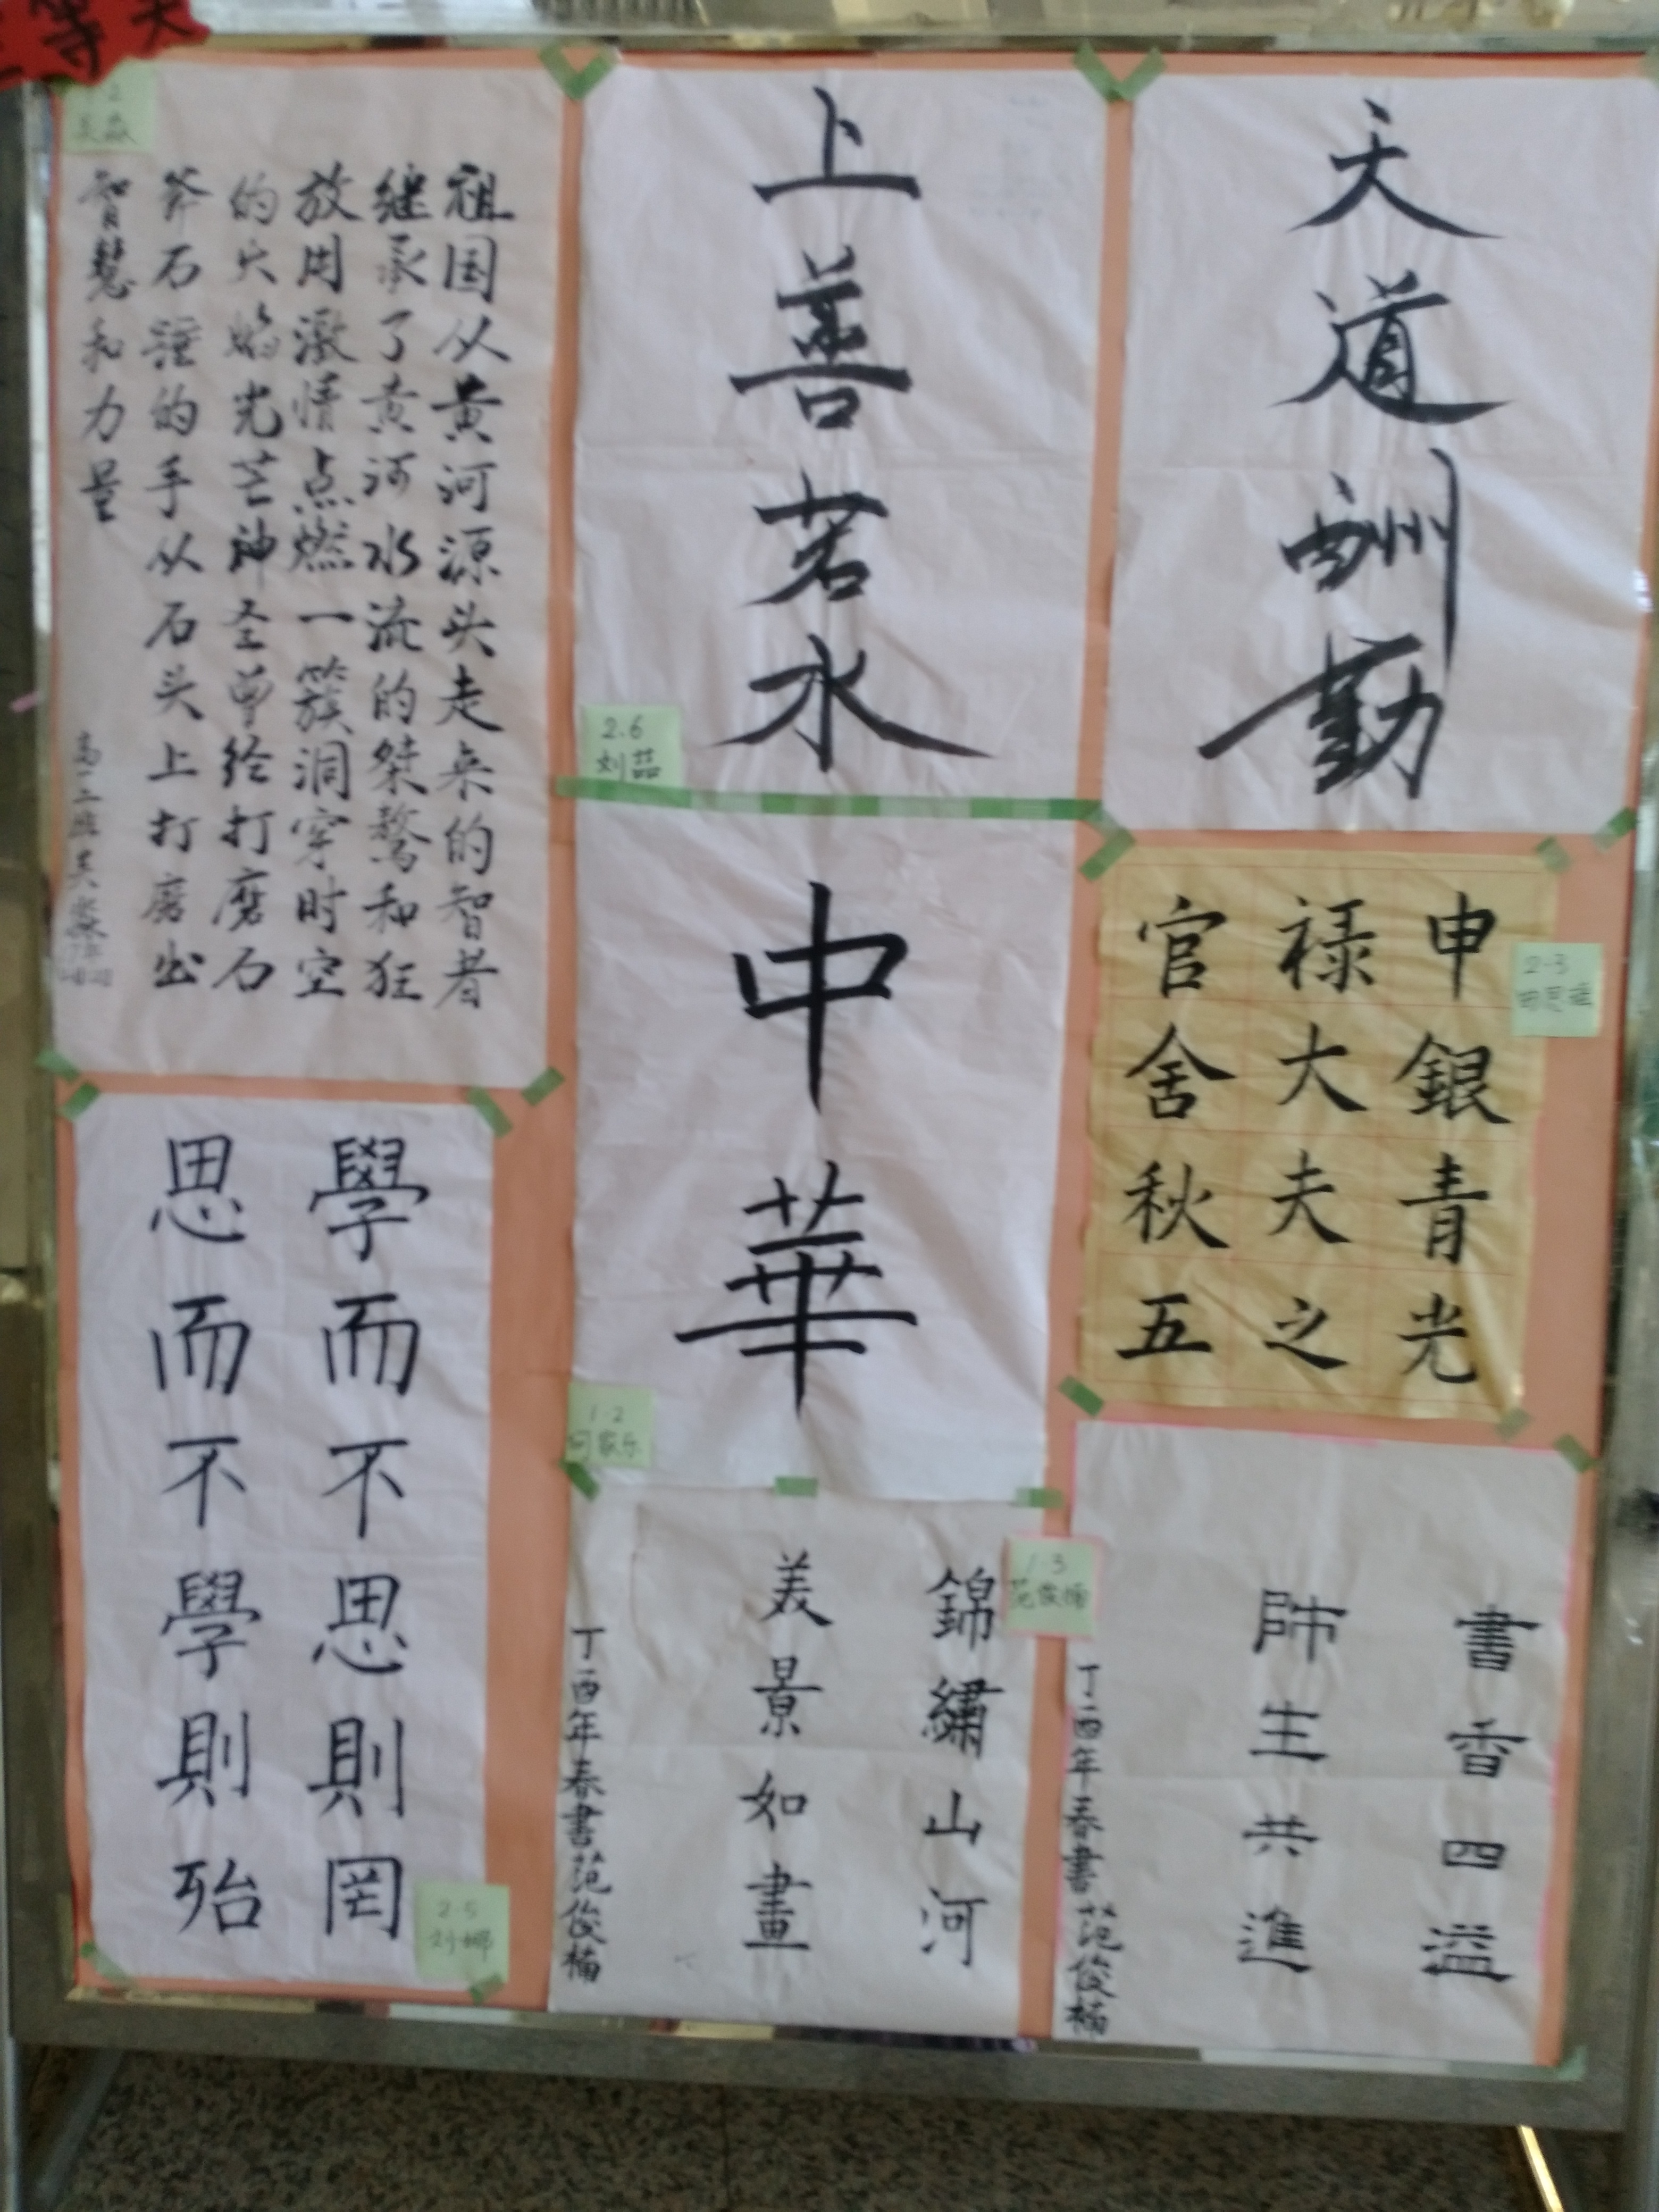 等
天道酬勤
上善若水
2.6
刘喆
祖国从黄河源头走来的智者
继承了黄河水流的桀骜和狂
放用激情点燃一簇洞穿时空
的火焰光芒神圣曾经打磨石
斧石锤的手从石头上打磨出
智慧和力量
申銀青光
禄大夫之
官舍秋五
2-3
中華
1·2
學而不思則罔
思而不學則殆
2-5
刘娜
書香四溢
師生共進
丁酉年春書范俊楠
1·3
范俊楠
錦繡山河
美景如畫
丁酉年春書范俊楠